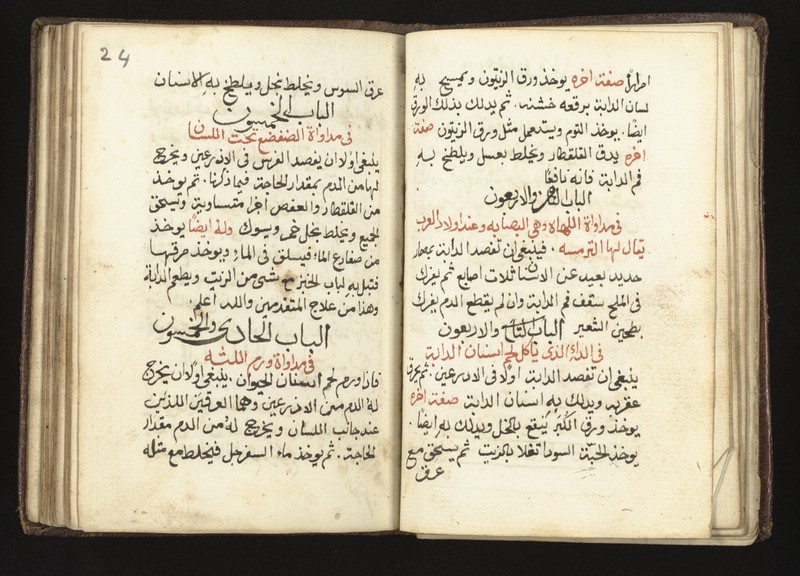 امرارًا صفة اخره يوخذ ورق الزيتون ويمسح به
لسان الدابة برقعه خشنه. ثم يدلك بذلك الورق
ايضًا. يوخذ التوم ويستعمل مثل ورق الزيتون صفة
اخره يدق القلقطار ويخلط بعسل ويلطخ به
فم الدابة فانه نافعًا
الباب الثامن والاربعون
في مداواة اللهاه وهي البصابه وعند اولاد العرب
يقال لها الترمسه. فينبغي ان تفصد الدابة بمبضع
حديد بعيد عن الاسنان ثلات اصابع ثم يفرك
في الملح سقف فم الدابة وان لم يقطع الدم يفرك
بطحين الشعير الباب التاسع والاربعون
في الداء الذي ياكل لحم اسنان الدابة
ينبغي ان تفصد الدابة اولًا في الادرعين. ثم يحرق
عقرب ويدلك به اسنان الدابة صفة اخره
يوخذ ورق الكبر ينقع بالخل ويدلك به ايضًا.
يوخذ الحبة السودا تغلا بالزيت ثم يستحق مع
عرق
24
عرق السوس ويخلط بخل ويلطخ به الاسنان
الباب الخمسون
في مداواة الضفضع تحت اللسان
ينبغي اولًا ان يفصد الفرس في الادرعين ويخرج
لها من الدم بمقدار الحاجة فيما ذكرنا. ثم يوخذ
من القلقطار والعفص اجزا متساويين وتسحق
الجميع ويخلط بخل خمر ويسوك وله ايضًا يوخذ
من ضفادع الماء فيسلق في الماء ويوخذ مرقتها
فتبل به لباب الخبز مع شي من الزيت ويطعم الدابة
وهذا من علاج المتقدمين والله اعلم.
الباب الحادي والخمسون
في مداواة ورم اللثه
فاذا ورم لحم اسنان الحيوان. ينبغي اولًا ان يخرج
له الدم من الادرعين وهما العرقين اللذين
عند جانب اللسان ويخرج له من الدم مقدار
الحاجة. ثم يوخذ ماء السفرجل فيخلط مع مثله